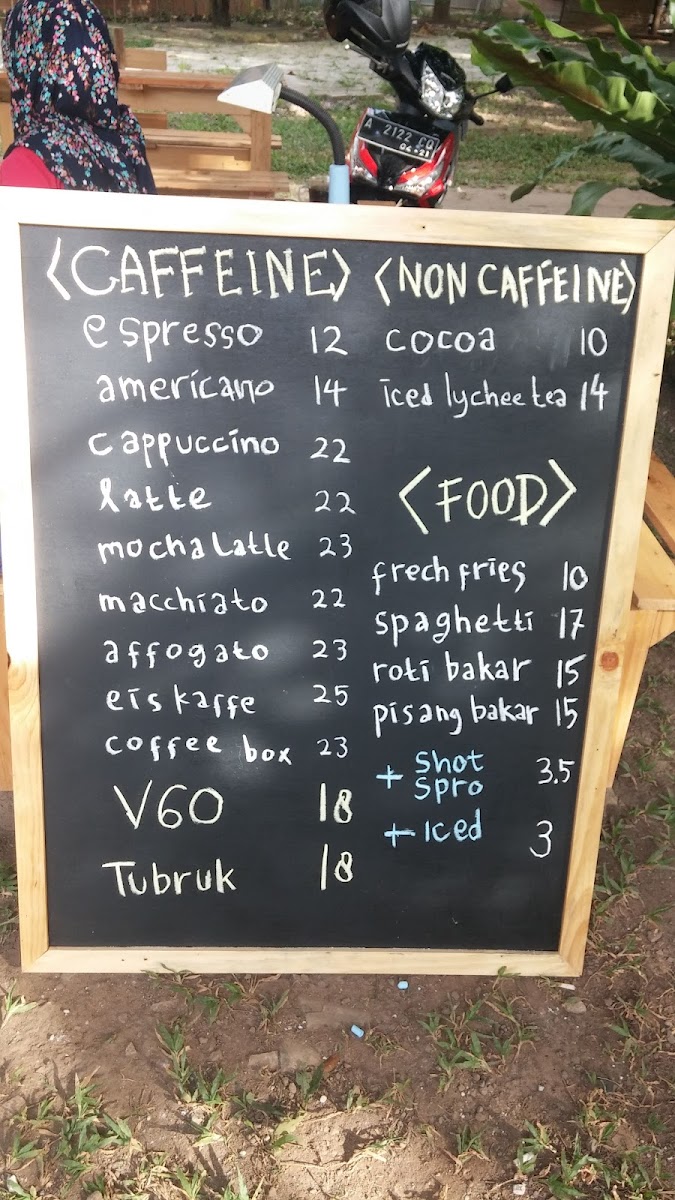 A 2122 CQ
04·21
<CAFFEINE>
espresso 12
americano 14
cappuccino 22
latte 22
mocha Latle 23
macchiato 22
affogato 23
eis kaffe 25
coffee box 23
V60 18
Tubruk 18
<NON CAFFEINE>
cocoa 10
iced lychee tea 14
<FOOD>
frech fries 10
spaghetti 17
roti bakar 15
pisang bakar 15
+ Shot Spro 3.5
+ Iced 3